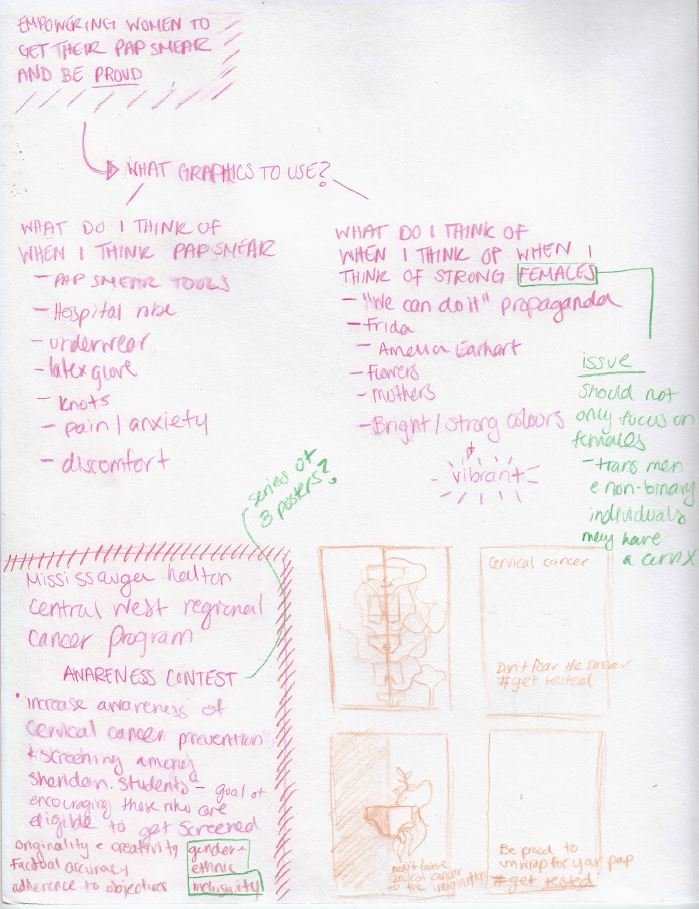 EMPOWERING WOMEN TO
GET THEIR PAP SMEAR
AND BE PROUD
WHAT GRAPHICS TO USE?
WHAT DO I THINK OF
WHEN I THINK PAP SMEAR
- PAP SMEAR TOOLS
- Hospital
- underwear
- latex glove
- knots
- pain / anxiety
- discomfort
WHAT DO I THINK OF
WHEN I THINK OF WHEN I
THINK OF STRONG FEMALES
- "We can do it" propaganda
- Frida
- Amelia Earhart
- Flowers
- mothers
- Bright / strong colours
vibrant
issue
Should not
only focus on
females
- trans men
e non-binary
individuals
may have
a cervix
series of
3 posters?
Mississauga halton
Central West regional
Cancer program
AWARENESS CONTEST
• increase awareness of
Cervical cancer prevention
+ screening among
sheridan students - goal of
encouraging those who are
eligible to get screened
originality + creativity
Factual accuracy
adherence to objectives
gender +
ethnic
inclusivity
Cervical cancer
Don't fear the smear
#get tested
Don't leave
cervical cancer
to the imagination
Be proud to
unwrap for your pap
#get tested